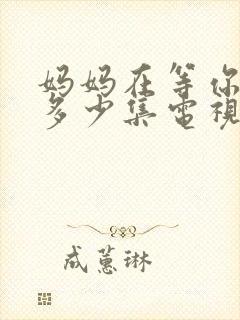 妈妈在等你
多少集電視
成蕙琳